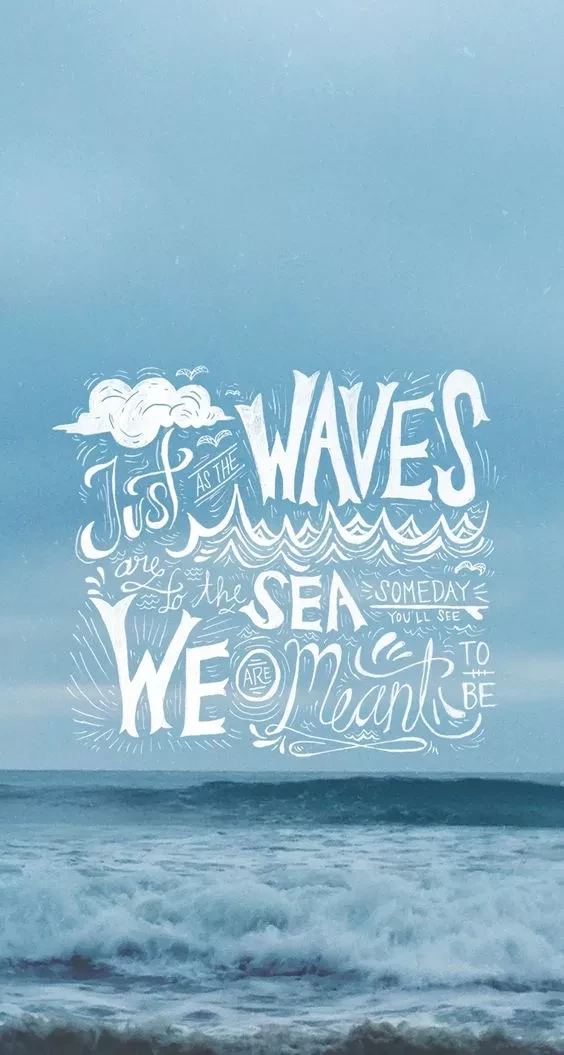 Just AS THE WAVES
are to the SEA SOMEDAY
YOU'LL SEE
WE ARE Meant TO
BE